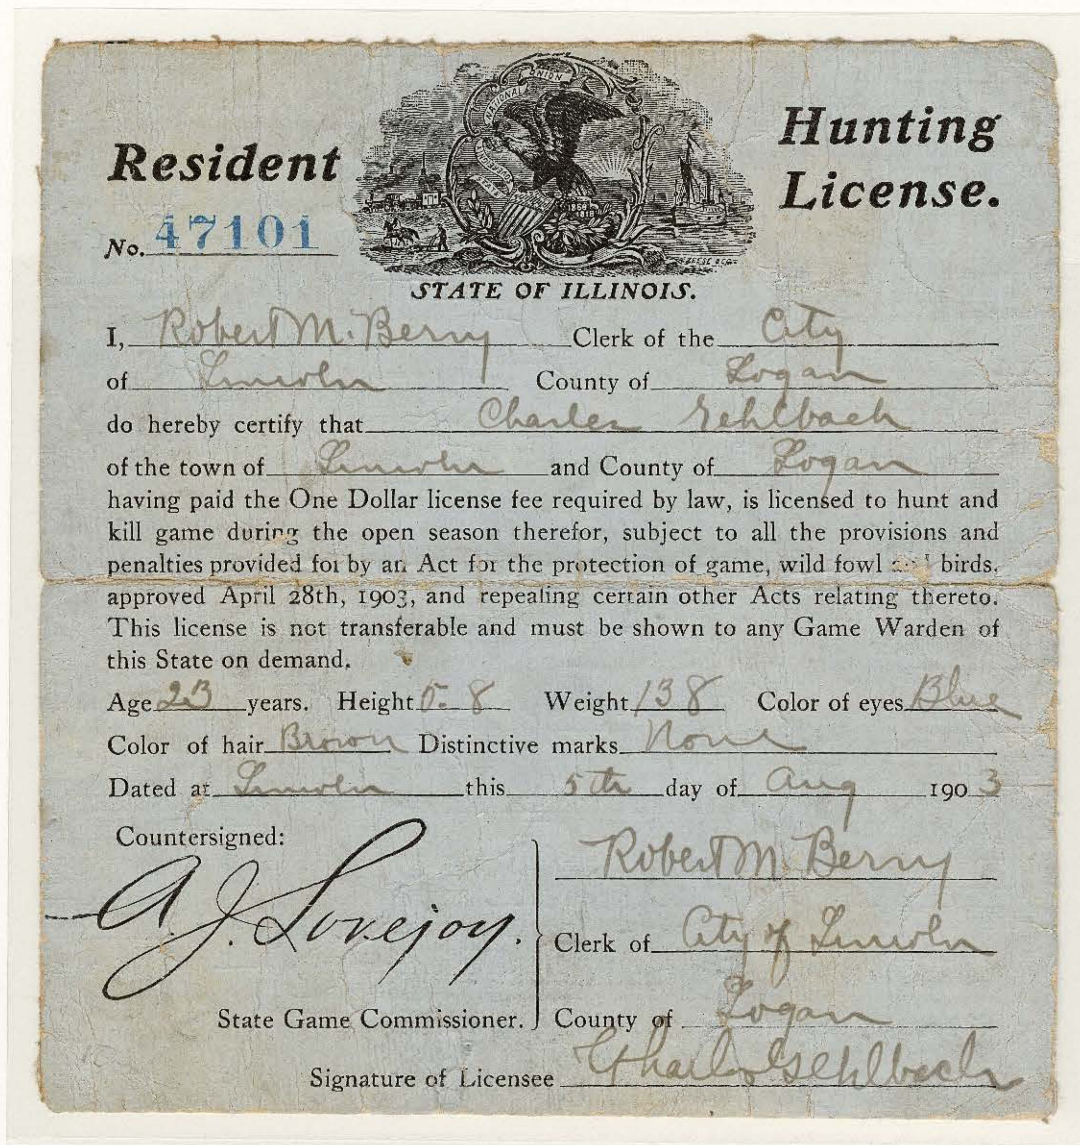 Resident
Hunting
License.
No. 47101
NATIONAL UNION
STATE OF ILLINOIS.
I, Robert M. Berry Clerk of the City
of Lincoln County of Logan
do hereby certify that Charles Gehlbach
of the town of Lincoln and County of Logan
having paid the One Dollar license fee required by law, is licensed to hunt and
kill game during the open season therefor, subject to all the provisions and
penalties provided for by an Act for the protection of game, wild fowl and birds,
approved April 28th, 1903, and repealing certain other Acts relating thereto.
This license is not transferable and must be shown to any Game Warden of
this State on demand.
Age 23 years. Height 5-8 Weight 138 Color of eyes Blue
Color of hair Brown Distinctive marks None
Dated at Lincoln this 5th day of Aug 1903
Countersigned:
A. J. Lovejoy.
State Game Commissioner.
Robert M. Berry
Clerk of City of Lincoln
County of Logan
Signature of Licensee Charles Gehlbach